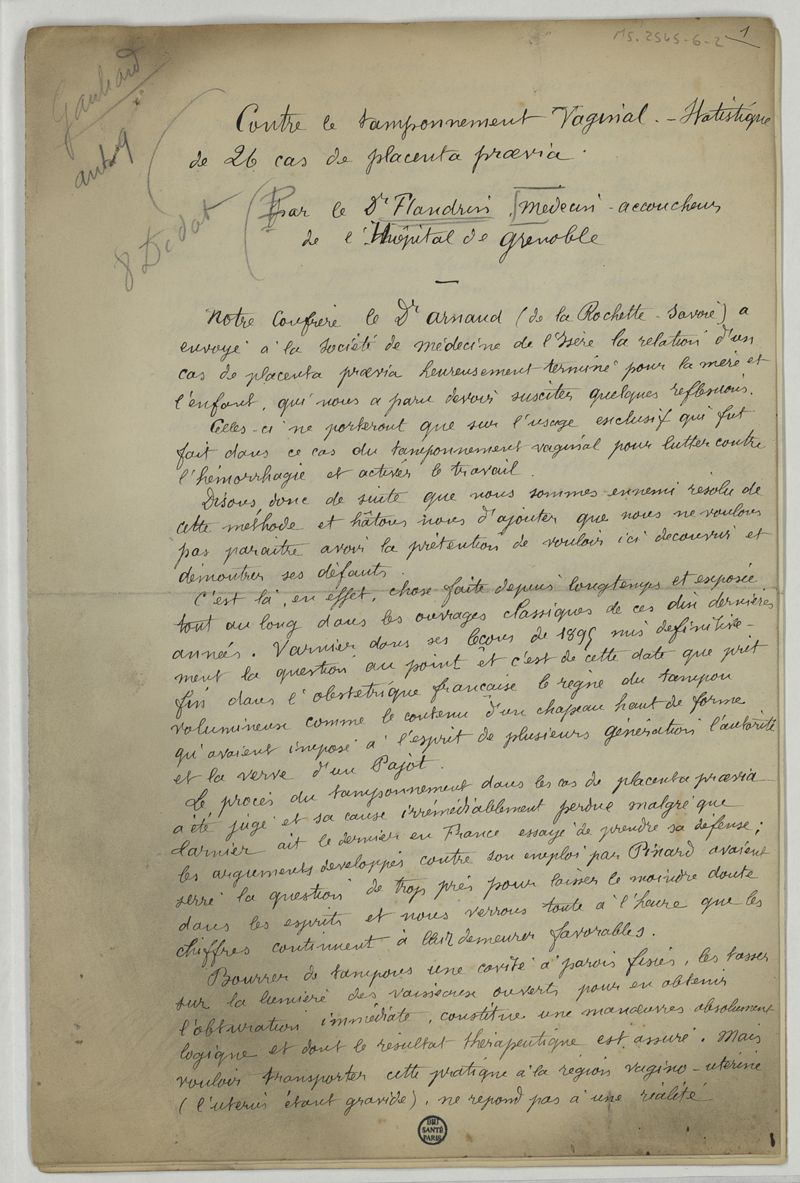 Ms. 2545-6-2
1
Gauliard
8 Didot
Contre le tamponnement Vaginal. - Statistique
de 26 cas de placenta prævia.
Par le Dr Flandrin, Médecin-accoucheur
de l'Hôpital de Grenoble
Notre Confrère le Dr Arnaud (de la Rochette-Savoie) a
envoyé à la Société de Médecine de l'Isère la relation d'un
cas de placenta prævia heureusement terminé pour la mère et
l'enfant, qui nous a paru devoir susciter quelques reflexions.
Celles-ci ne porteront que sur l'usage exclusif qui fut
fait dans ce cas du tamponnement vaginal pour lutter contre
l'hémorrhagie et activer le travail.
Disons donc de suite que nous sommes ennemi résolu de
cette méthode et hâtons nous d'ajouter que nous ne voulons
pas paraitre avoir la prétention de vouloir ici decouvrir et
démontrer ses défauts.
C'est là, en effet, chose faite depuis longtemps et exposée
tout au long dans les ouvrages classiques de ces dix dernières
années. Varnier dans ses leçons de 1895 mis definitive-
ment la question au point et c'est de cette date que prit
fin dans l'obstetrique française le regne du tampon
volumineux comme le contenu d'un chapeau haut de forme
qu'avaient imposé à l'esprit de plusieurs génération l'autorité
et la verve d'un Pajot.
Le procès du tamponnement dans les cas de placenta prævia
a été jugé et sa cause irrémédiablement perdue malgré que
Tarnier ait le dernier en France essayé de prendre sa défense;
les arguments developpés contre son emploi par Pinard avaient
serré la question de trop près pour laisser le moindre doute
dans les esprits et nous verrons toute à l'heure que les
chiffres continuent à lui demeurer favorables.
Bourrer de tampons une cavité à parois fixes, les tasser
sur la lumière des vaisseaux ouverts pour en obtenir
l'obturation immédiate, constitue une manœuvres absolument
logique et dont le résultat thérapeutique est assuré. Mais
vouloir transporter cette pratique à la région vagino-utérine
(l'uterus étant gravide), ne repond pas à une réalité
BIU
SANTÉ
PARIS